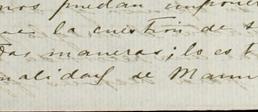 nos puedan imponer
la cuestión de
maneras; lo es t
nalidad se Man